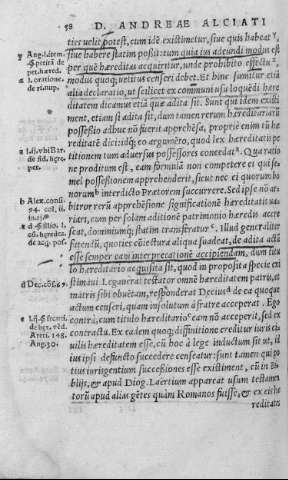 58 D. ANDREAE ALCIATI
ties velit potest, cum idẽ existimetur, siue quis habeat,
siue habere statim possit: tum quia ius adeundi modus est
per quẽ hæreditas acquiritur, unde prohibito effectu,
modus quoq; uetitus censeri debet. Et hinc sumitur etiã
alia declaratio, ut scilicet ex communi usu loquẽdi hære
ditatem dicamus etiã quæ adita sit. Sunt qui idem existi
ment, etiam si adita sit, dum tamen rerum hæreditariarũ
possessio adhuc nõ fuerit apprehẽsa, propriè enim tũ hæ
reditatẽ dici:idq; eo argumẽto, quod lex hæreditatis pe
titionem tum aduersus possessores concedat. Qua ratio
ne proditum est, eam formulã non competere ei qui se-
mel possessionem apprehenderit, sicut nec ei quorum bo
norum interdicto Prætorem succurrere. Sed ipse nõ ar
bitror rerũ apprehẽsione significationẽ hæreditatis ua-
riari, cum per solam aditionem patrimonio hæredis accre
scat, dominiumq; statim transferatur. Illud generaliter
quoties coniectura aliqua suadeat, de adita actũ
esse semper eam interpretatione accipiendam, dum titu
lo hæreditario acquisita sit, quod in proposita specie exi
stimaui. Legauerat testator omnẽ hæreditatem patri, ac
matris sibi obuẽtam, responderat Decius de ea quoque
actum censeri, quam insdutum à fratre acceperat. Ego
contrà, cum titulo hæreditario eam nõ acceperit, sed ex
contractu. Ex eadem quoq; disputatione creditur iuris ci
uilis hæreditatem esse, cũ hoc à lege inductum sit ut, il
lius ipsi defuncto succedere censeatur: sunt tamen qui po
tius iurisgentium successiones esse existiment, cũ in Bi-
blijs, & apud Diog. Laërtium appareat usum testamen
torũ apud alias gẽtes quàm Romanos fuisse, & ex eis hæ
reditatis
y Ang. in tem.
z l. oratione.
de rit. nup.
de fid.
b Alex. consi.
94. col. ii.
in ij.
d Dec. cõs. 69.
148.
Ang. 30.